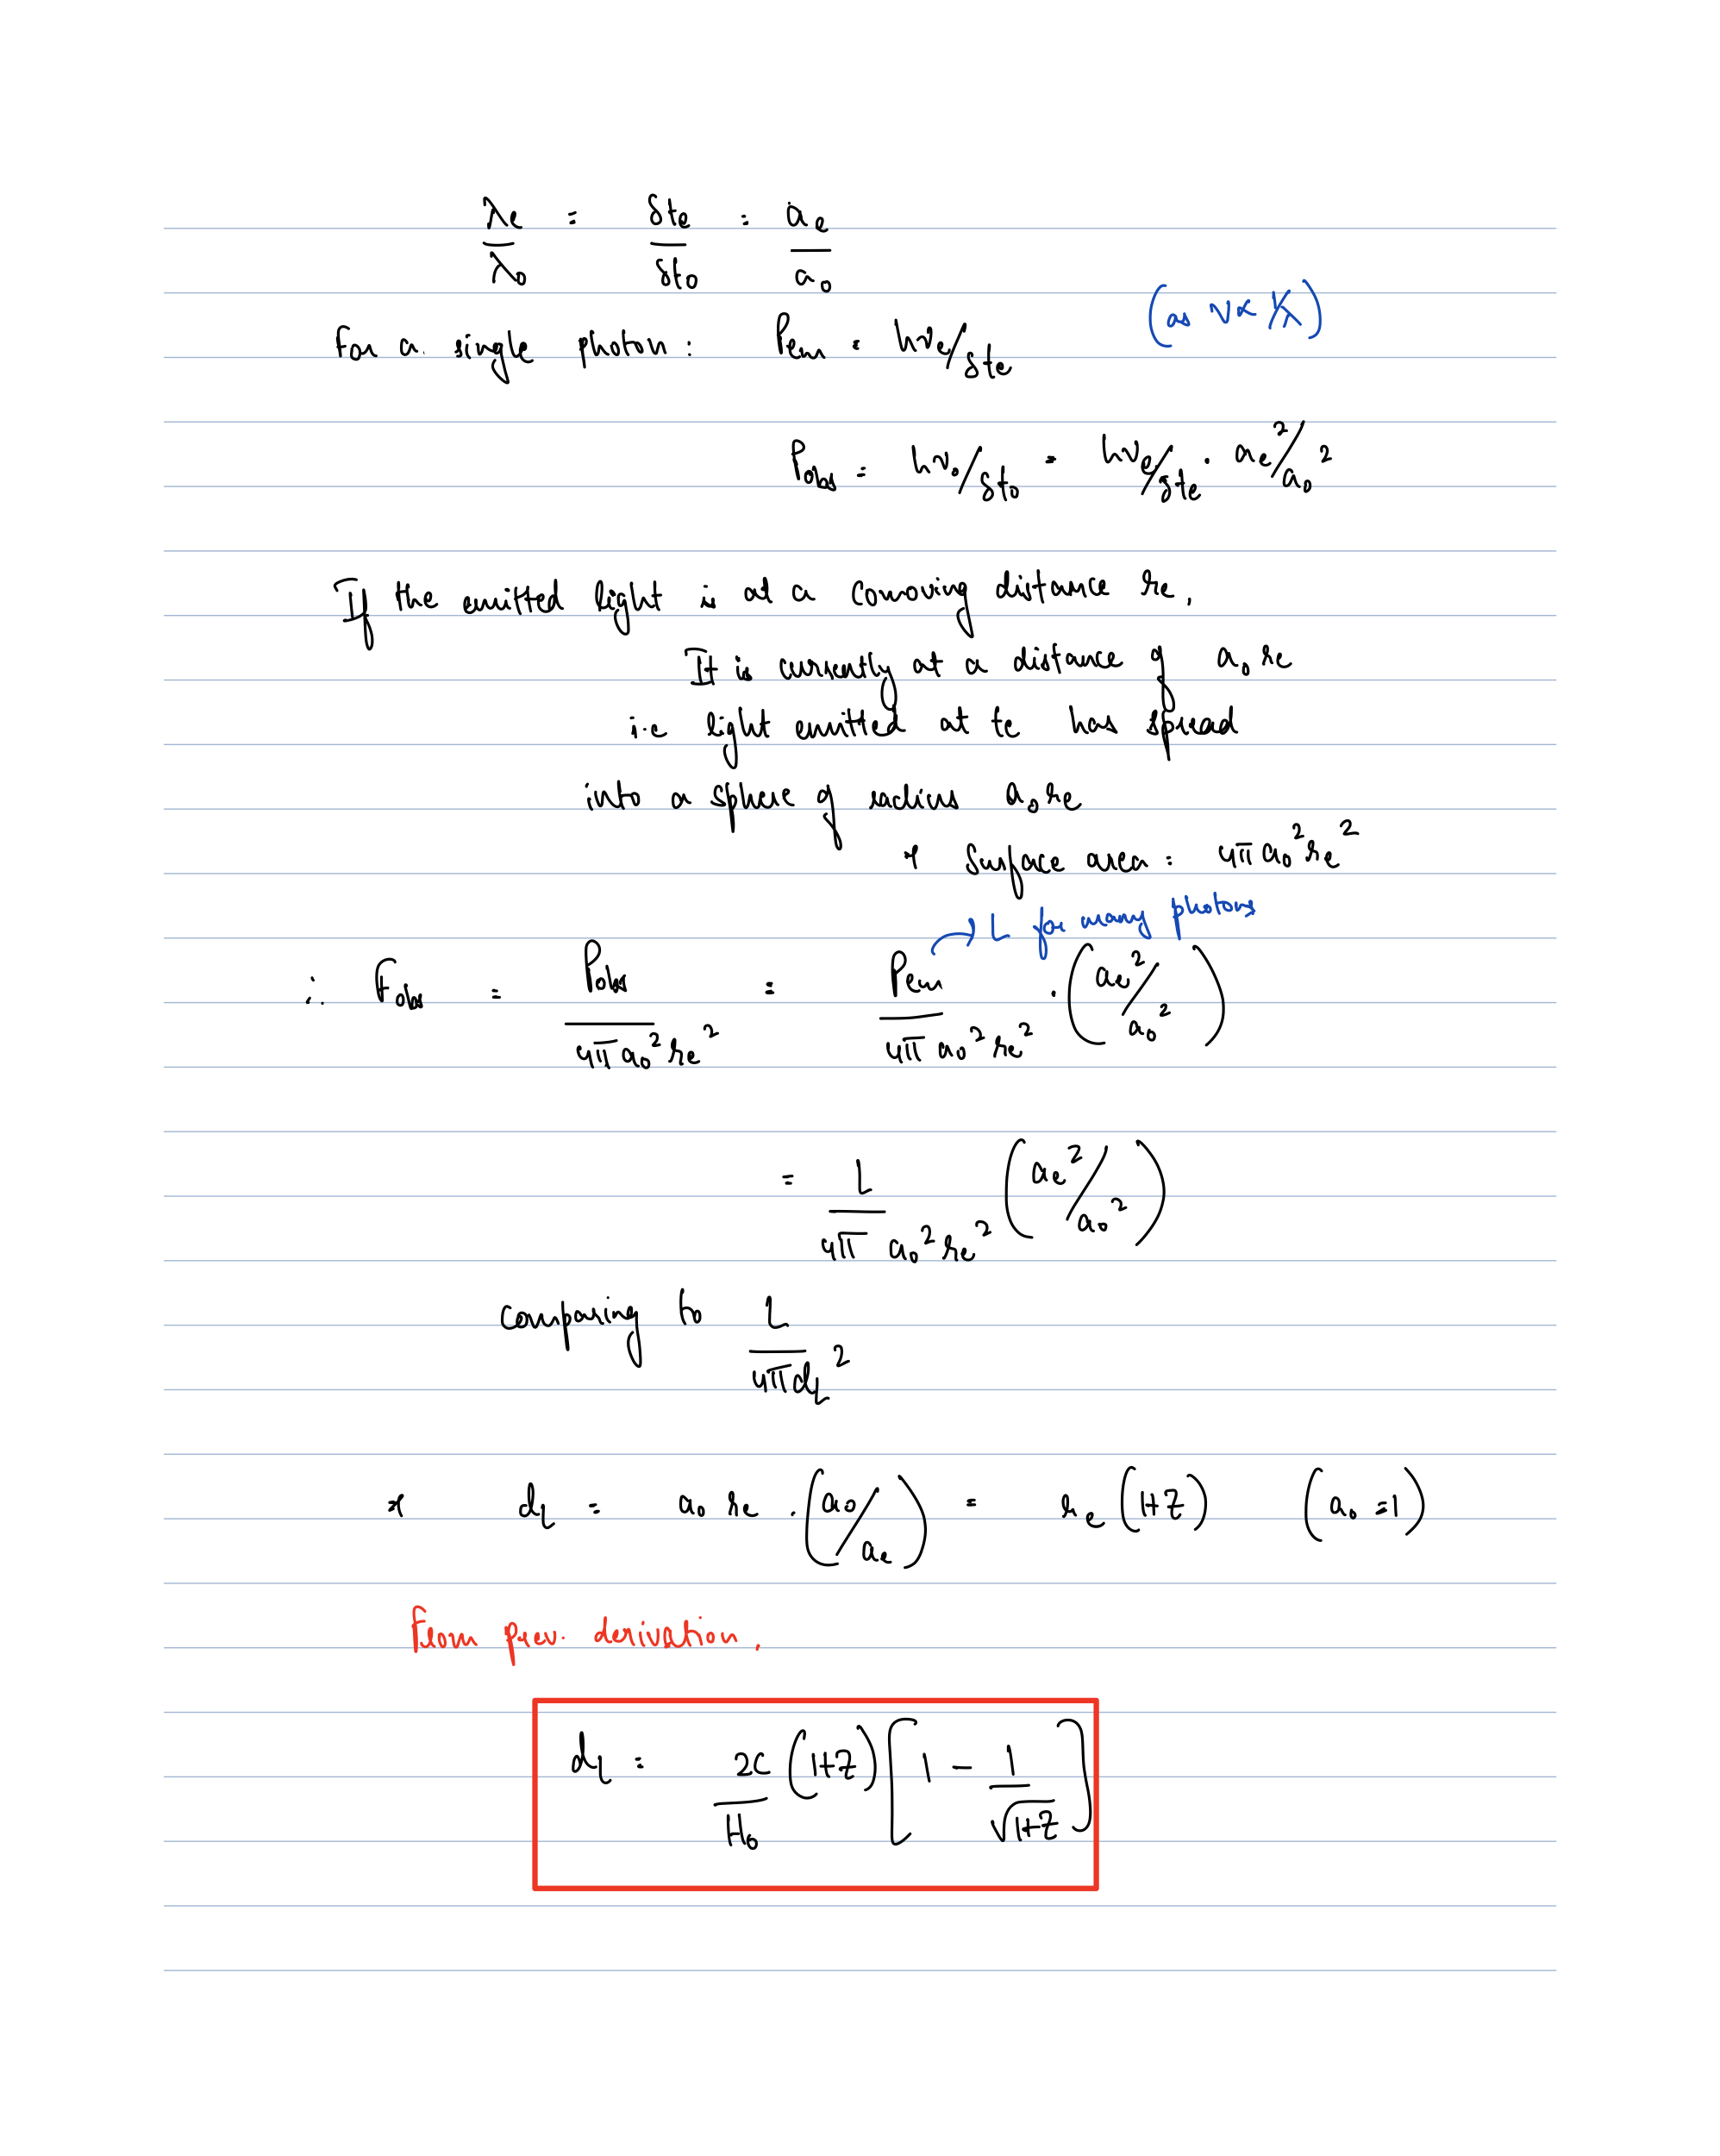 λe/λ0 = δte/δt0 = ae/a0
(as ν ∝ 1/λ)
For a single photon: Pem = hνe/δte
Pobs = hν0/δt0 = hνe/δte . ae²/a0²
If the emitted light is at a comoving distance re,
It is currently at a distance of a0 re
i.e light emitted at te has spread
into a sphere of radius a0re
* Surface area = 4π a0² re²
→ L for many photons
∴ Fobs = Pobs/4πa0²re² = Pem/4π a0² re² . (ae²/a0²)
= L/4π a0² re² (ae²/a0²)
comparing to L/4πdL²
* dL = a0 re . (a0/ae) = re (1+z) (a0 = 1)
From prev. derivation,
dL = 2c/H0 (1+z) [1 - 1/√1+z]